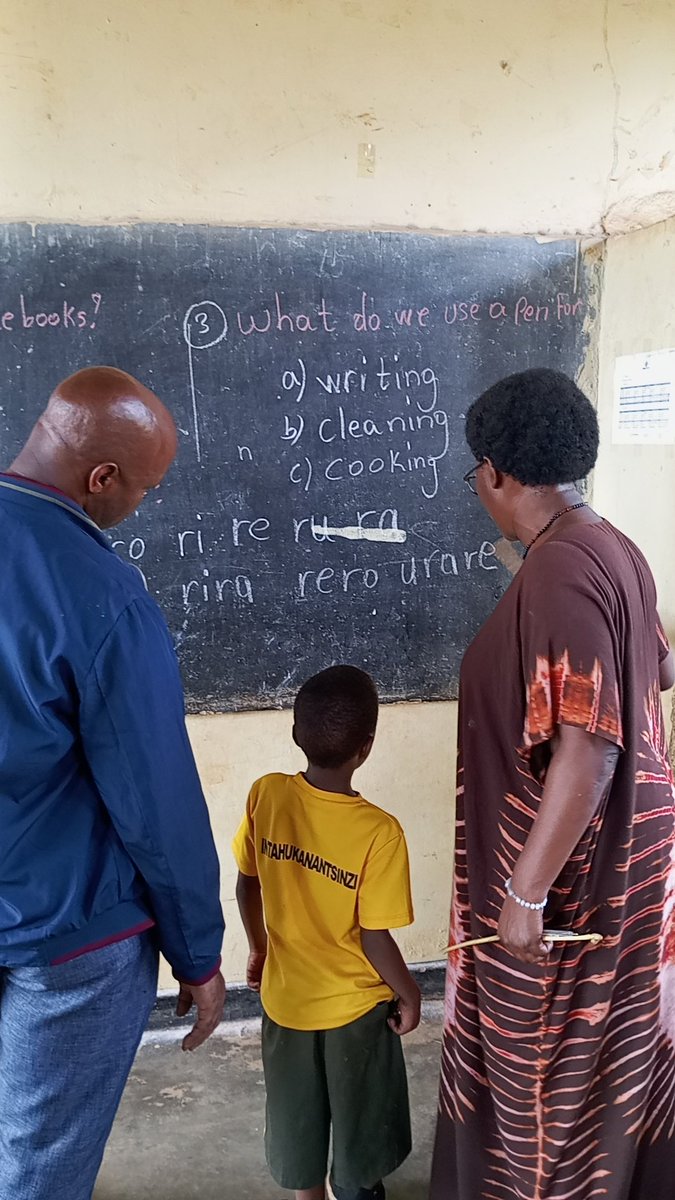 ebooks?
3 What do we use a Pen For
a) writing
b) cleaning
n
c) cooking
ro ri re ru ra
rira rero urare
NTAHUKANANTSINZI